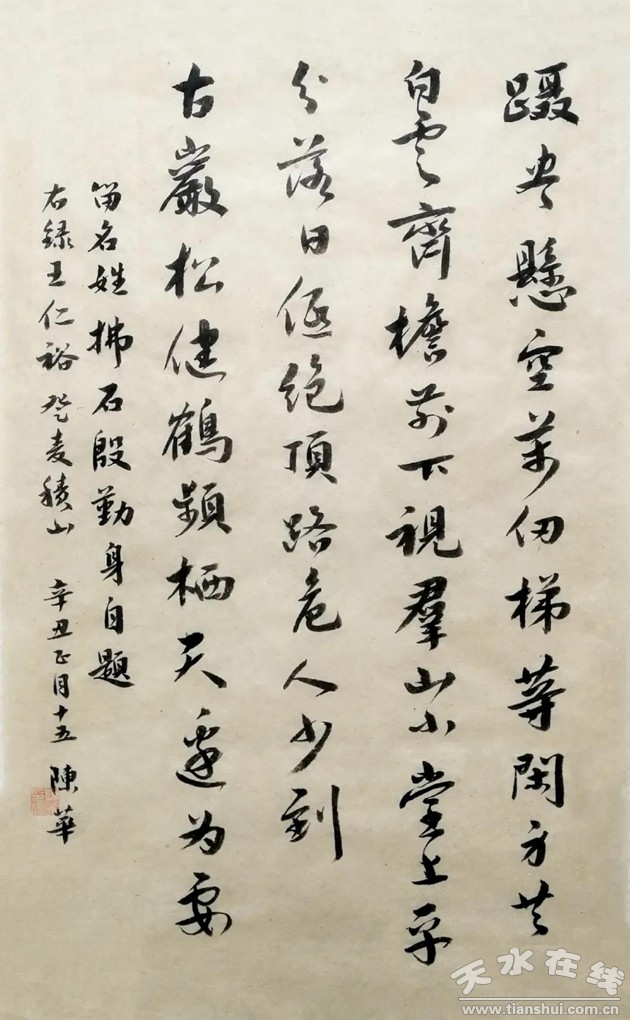 蹑尽懸空萬仞梯等閑身共
白雲齊檐前下視羣山小堂上平
分落日低絶頂路危人少到
古巖松健鶴頻栖天邊为要
留名姓拂石殷勤身自題
右録王仁裕登麦積山 辛丑正月十五 陳華
天水在线
www.tianshui.com.cn